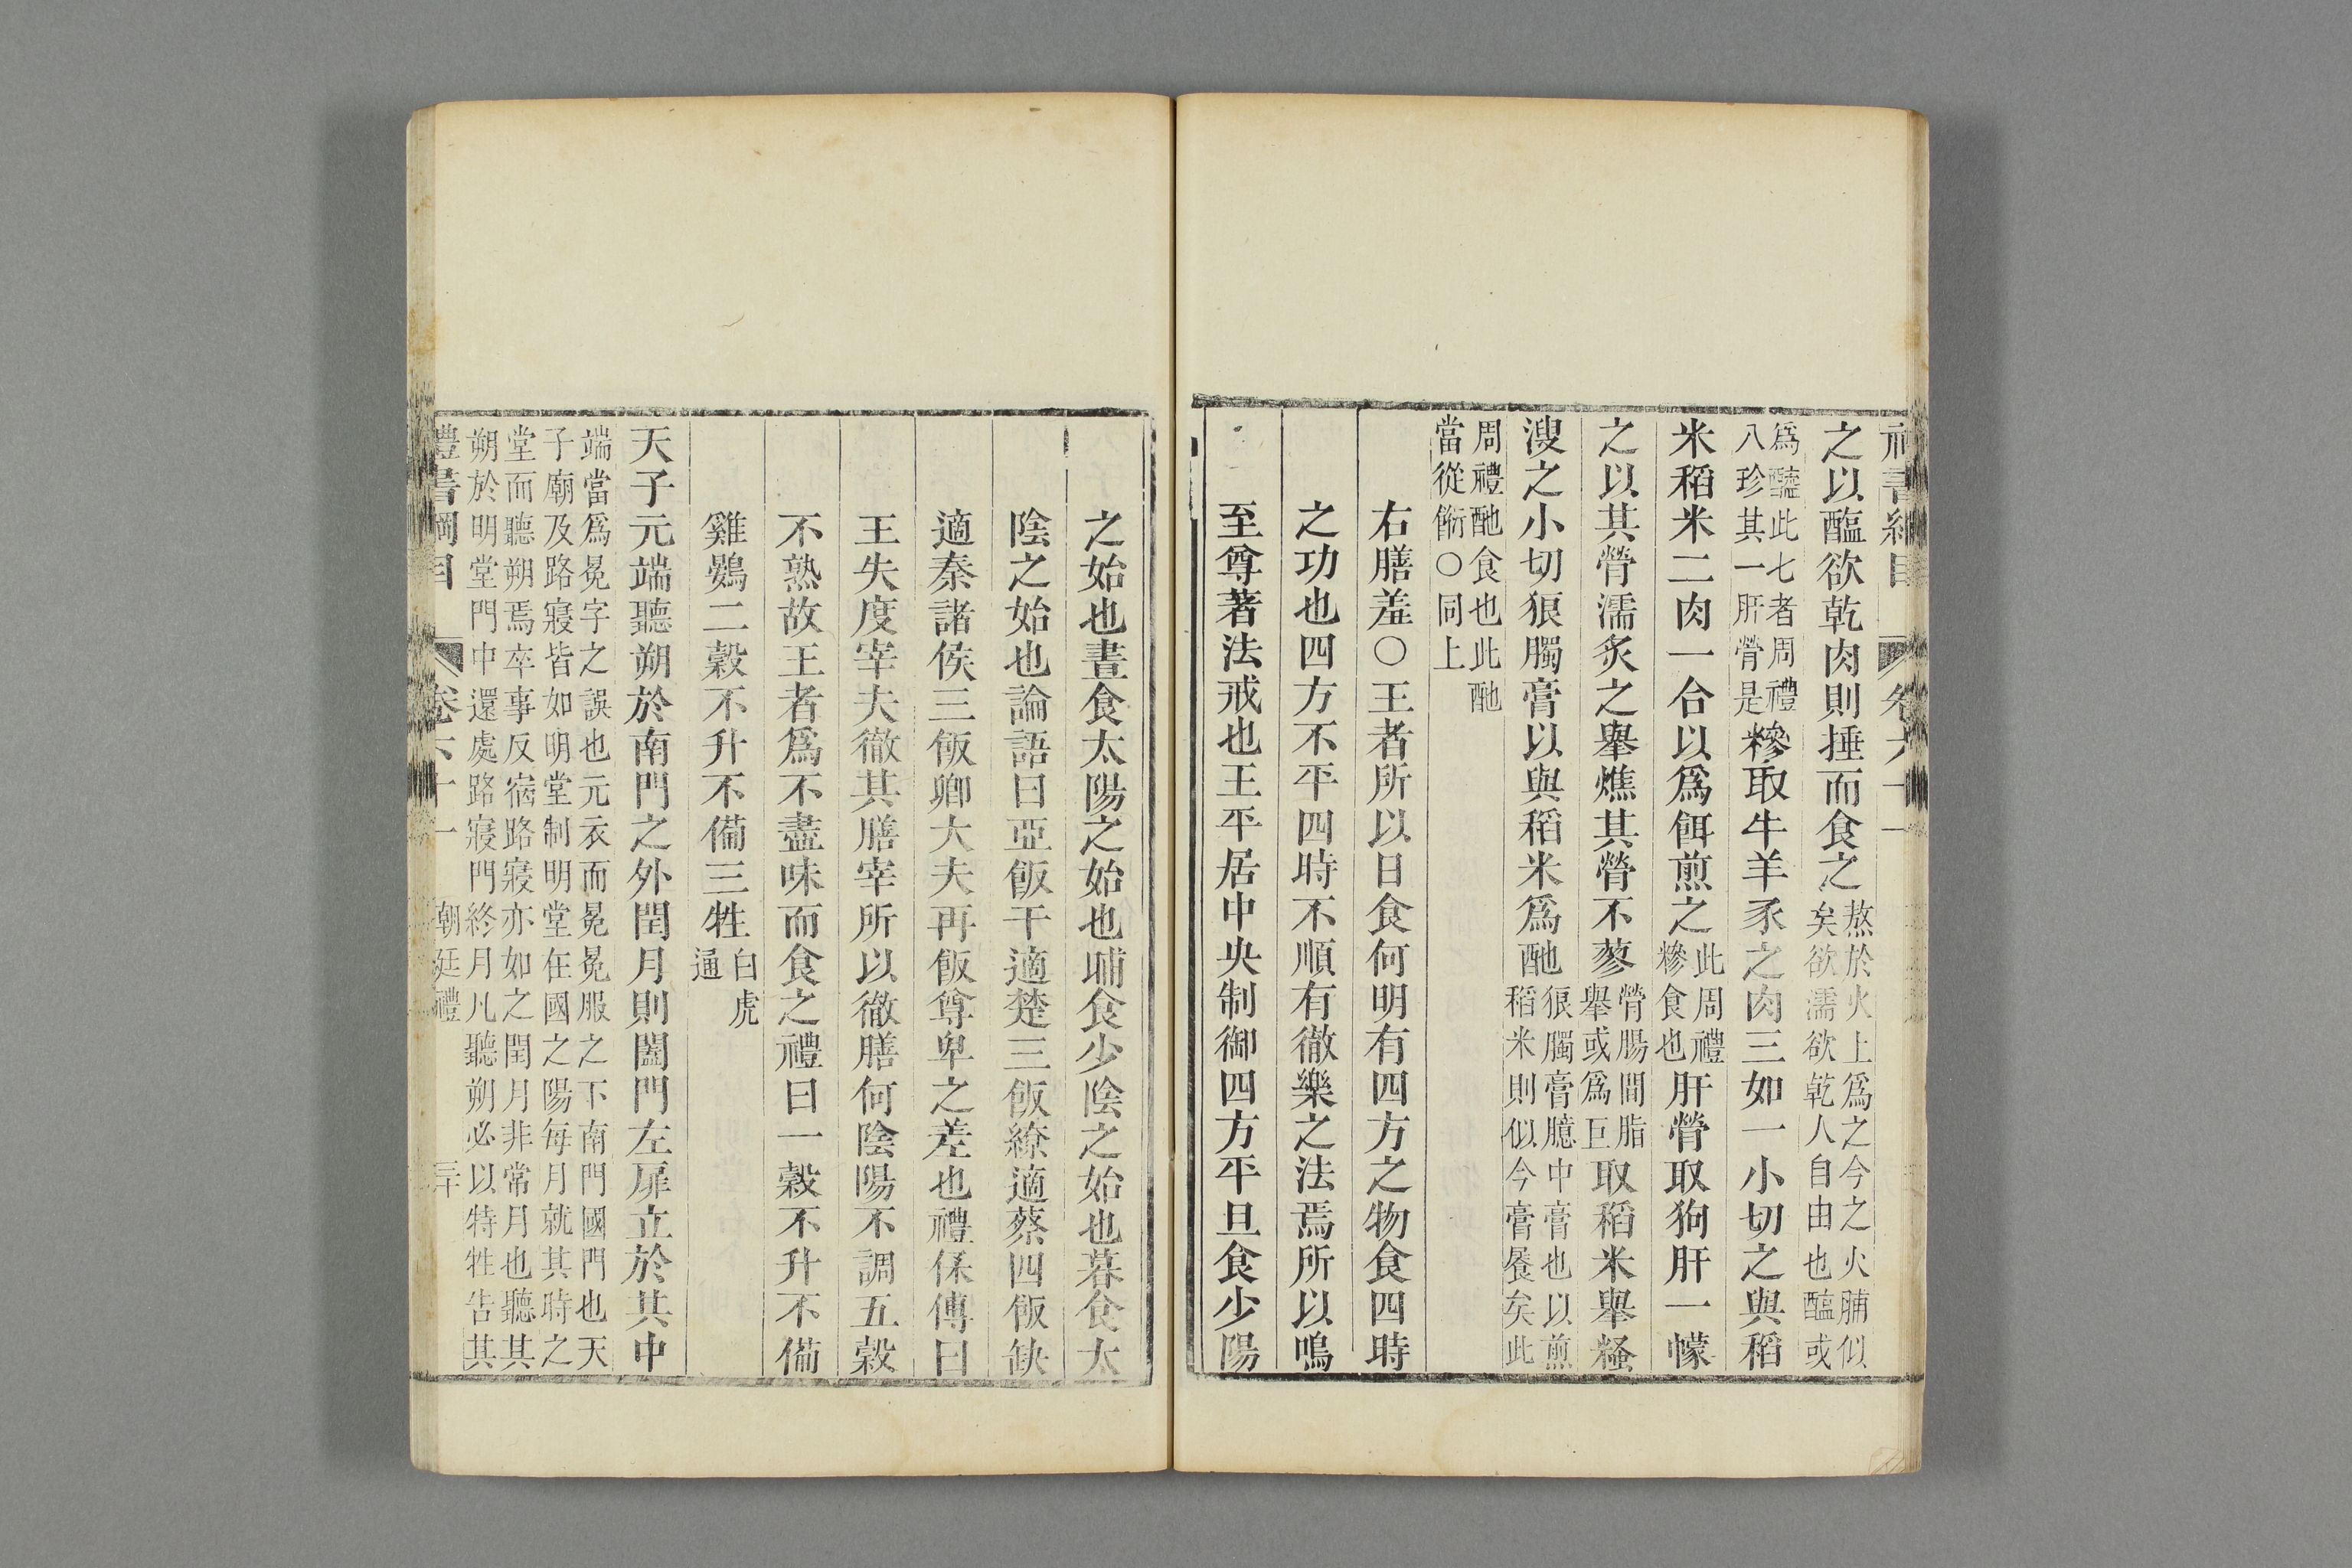 禮書綱目 卷六十一
之以醢欲乾肉則捶而食之熬於火上爲之今之火脯似矣欲濡欲乾人自由也醢或
爲醯此七者周禮八珍其一肝膋是糝取牛羊豕之肉三如一小切之與稻
米稻米二肉一合以爲餌煎之此周禮糝食也肝膋取狗肝一幪
之以其膋濡炙之舉燋其膋不蓼膋腸間脂舉或爲巨取稻米舉糔
溲之小切狼臅膏以與稻米爲酏狼臅膏臆中膏也以煎稻米則似今膏餐矣此
周禮酏食也此酏當從餰○同上
右膳羞○王者所以日食何明有四方之物食四時
之功也四方不平四時不順有徹樂之法焉所以鳴
至尊著法戒也王平居中央制御四方平旦食少陽
之始也晝食太陽之始也晡食少陰之始也暮食太
陰之始也論語曰亞飯干適楚三飯繚適蔡四飯缺
適秦諸侯三飯卿大夫再飯尊卑之差也禮保傅曰
王失度宰夫徹其膳宰所以徹膳何陰陽不調五穀
不熟故王者爲不盡味而食之禮曰一穀不升不備
雞鷃二穀不升不備三牲白虎通
天子元端聽朔於南門之外閏月則闔門左扉立於其中
端當爲冕字之誤也元衣而冕冕服之下南門國門也天
子廟及路寢皆如明堂制明堂在國之陽每月就其時之
堂而聽朔焉卒事反宿路寢亦如之閏月非常月也聽其
朔於明堂門中還處路寢門終月凡聽朔必以特牲告其
禮書綱目 卷六十一 朝廷禮 三十